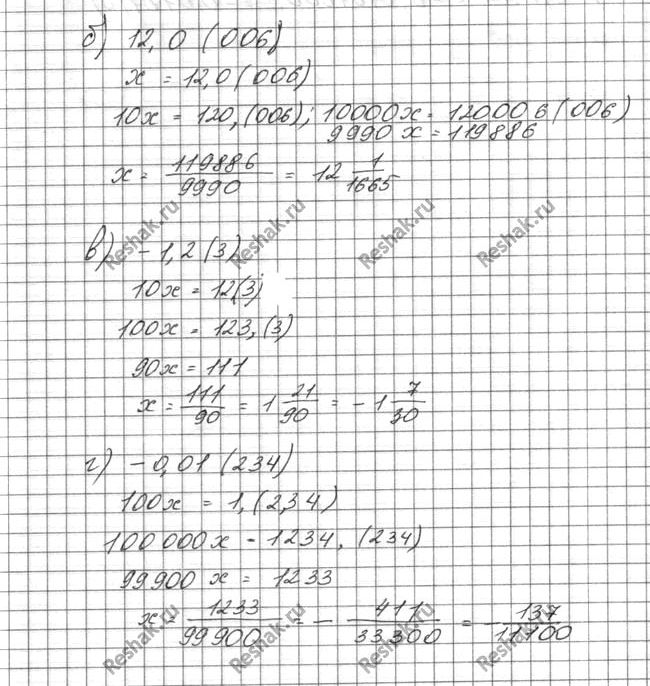 б) 12,0 (006)
x = 12,0 (006)
10x = 120,(006); 10000x = 120006(006)
9990 x = 119886
x = 119886/9990 = 12 1/1665
в) - 1,2 (3)
10x = 12(3)
100x = 123,(3)
90x = 111
x = 111/90 = 1 21/90 = - 1 7/30
г) - 0,01 (234)
100x = 1,(234)
100 000x = 1234, (234)
99900 x = 1233
x = 1233/99900 = - 411/33300 = - 137/11100
Reshak.ru Reshak.ru Reshak.ru Reshak.ru
Reshak.ru Reshak.ru Reshak.ru Reshak.ru